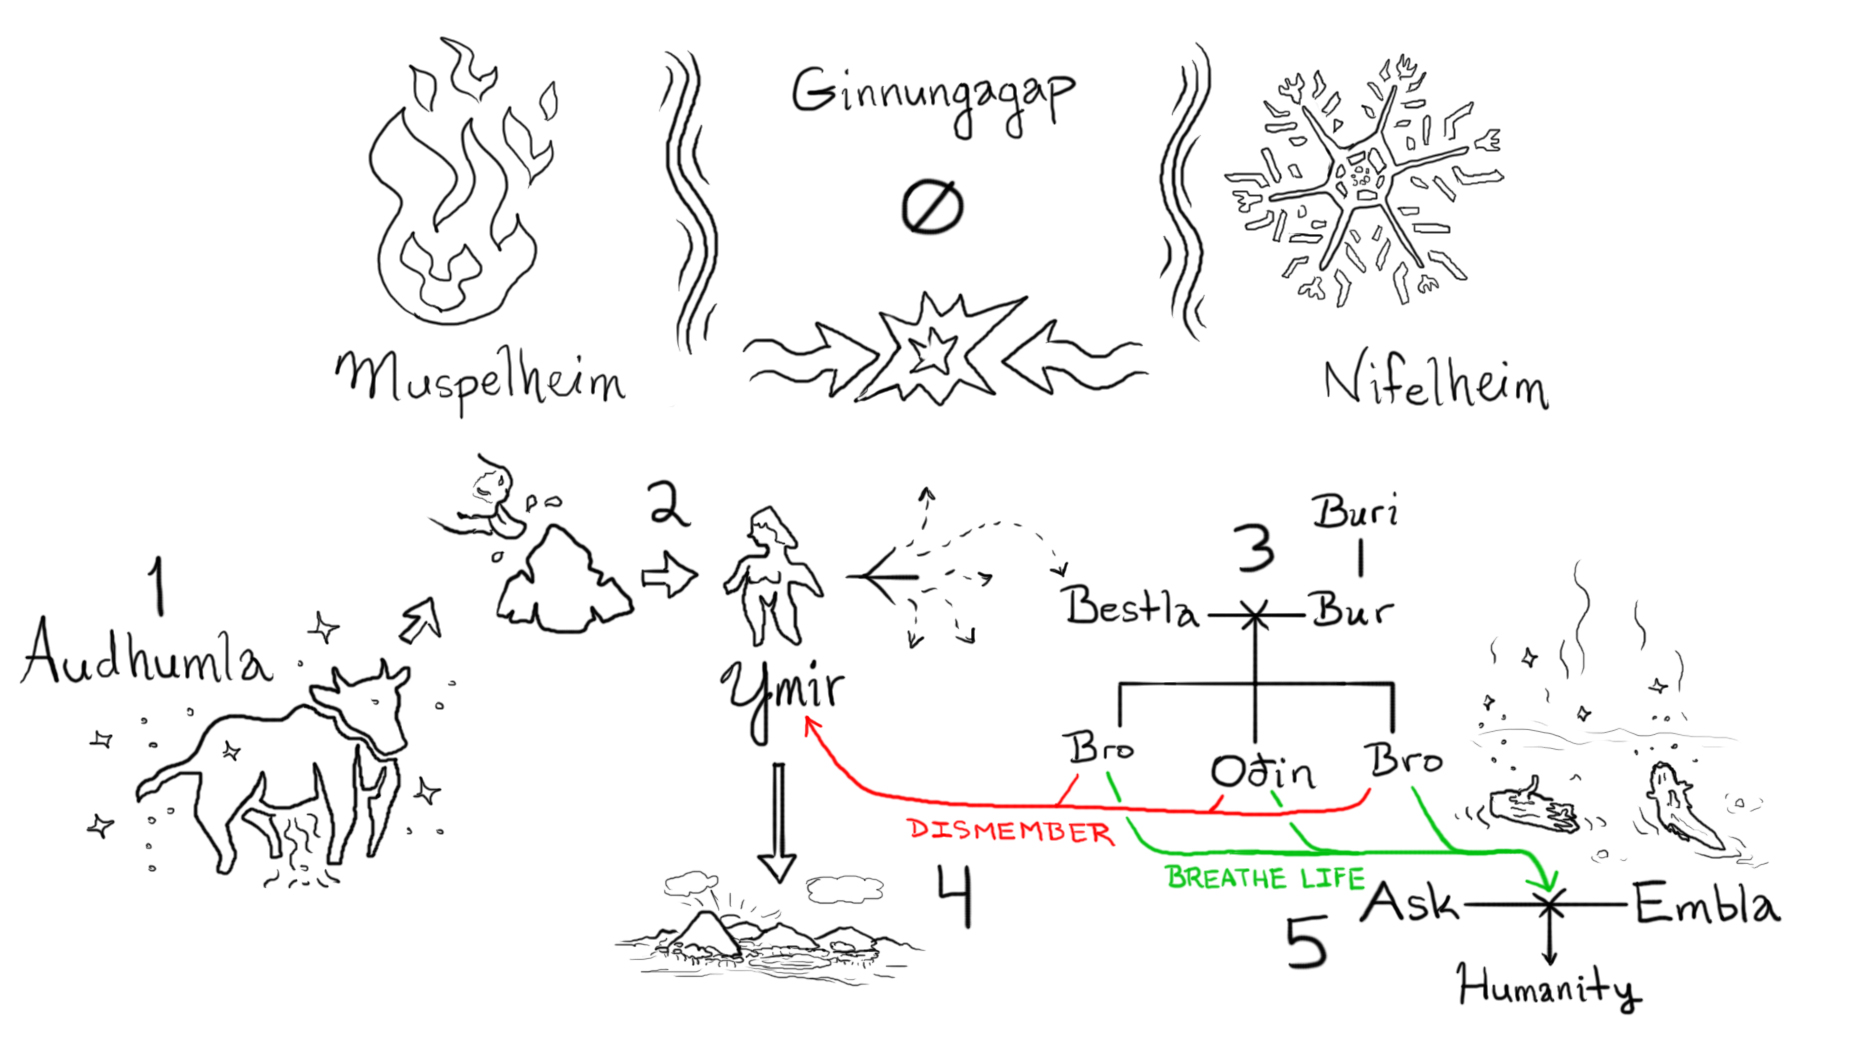 Ginnungagap
Ø
Muspelheim
Nifelheim
1
Audhumla
2
Ymir
3
Buri
Bestla
Bur
Bro
Odin
Bro
DISMEMBER
4
BREATHE LIFE
5
Ask
Embla
Humanity